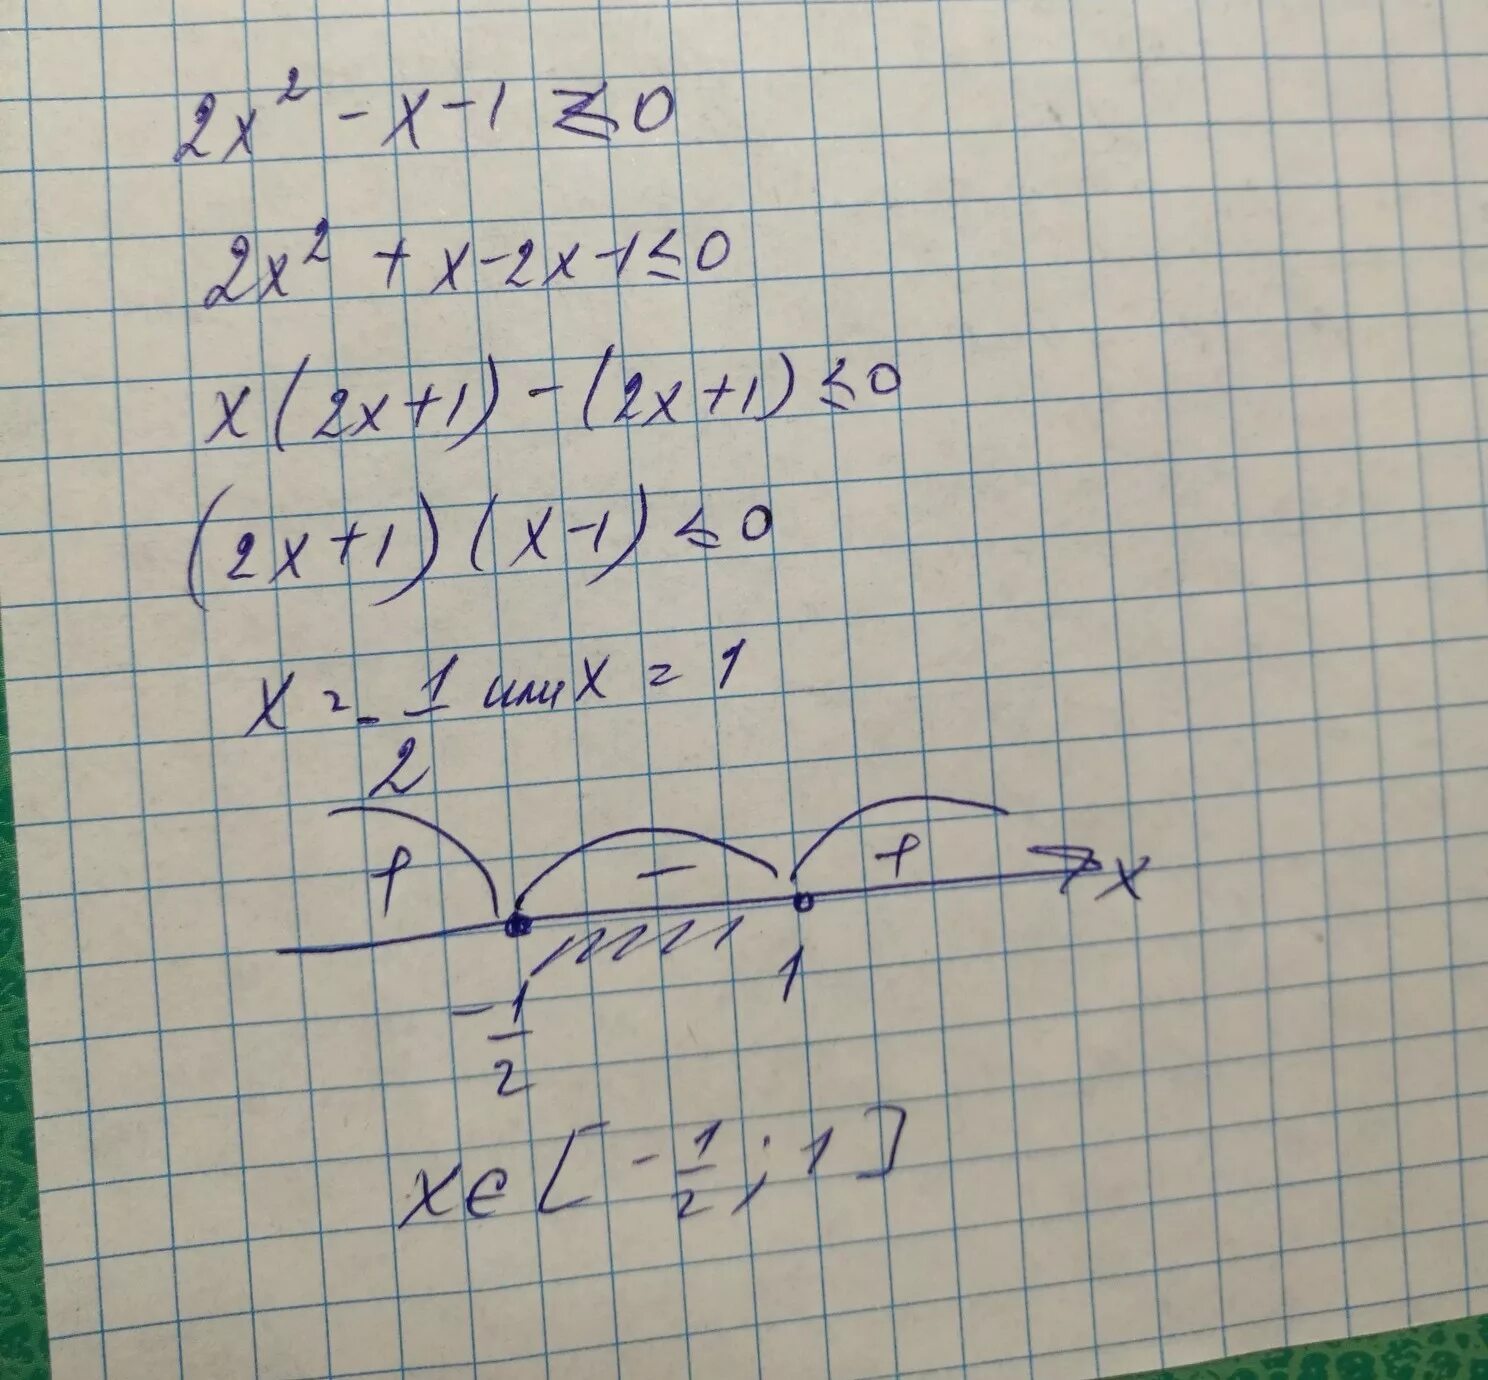 2x² - x - 1 ≤ 0
2x² + x - 2x - 1 ≤ 0
x(2x+1) - (2x+1) ≤ 0
(2x+1)(x-1) ≤ 0
x = -1/2 или x = 1
+ - + x
-1/2 1
x∈[-1/2; 1]